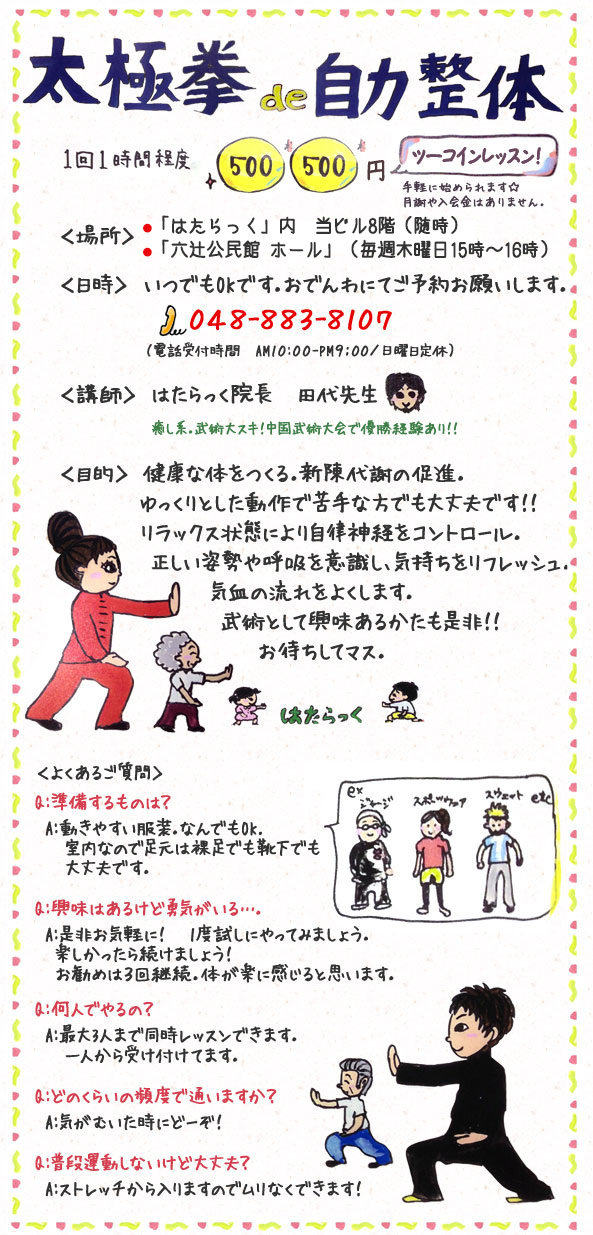 太極拳 de 自力整体
1回1時間程度 500 500 円 ツーコインレッスン!
手軽に始められます☆
月謝や入会金はありません。
<場所> ●「はたらっく」内 当ビル8階(随時)
●「六辻公民館 ホール」(毎週木曜日15時~16時)
<日時> いつでもOKです。おでんわにてご予約お願いします。
048-883-8107
(電話受付時間 AM10:00-PM9:00/日曜日定休)
<講師> はたらっく院長 田代先生
癒し系。武術大スキ!中国武術大会で優勝経験あり!!
<目的> 健康な体をつくる。新陳代謝の促進。
ゆっくりとした動作で苦手な方でも大丈夫です!!
リラックス状態により自律神経をコントロール。
正しい姿勢や呼吸を意識し、気持ちをリフレッシュ。
気血の流れをよくします。
武術として興味あるかたも是非!!
お待ちしてマス。
はたらっく
<よくあるご質問>
Q:準備するものは?
A:動きやすい服装。なんでもOK。
室内なので足元は裸足でも靴下でも
大丈夫です。
ex ジャージ スポーツウェア スウェット etc
Q:興味はあるけど勇気がいる…。
A:是非お気軽に! 1度試しにやってみましょう。
楽しかったら続けましょう!
お勧めは3回継続。体が楽に感じると思います。
Q:何人でやるの?
A:最大3人まで同時レッスンできます。
一人から受け付けてます。
Q:どのくらいの頻度で通いますか?
A:気がむいた時にどーぞ!
Q:普段運動しないけど大丈夫?
A:ストレッチから入りますのでムリなくできます!